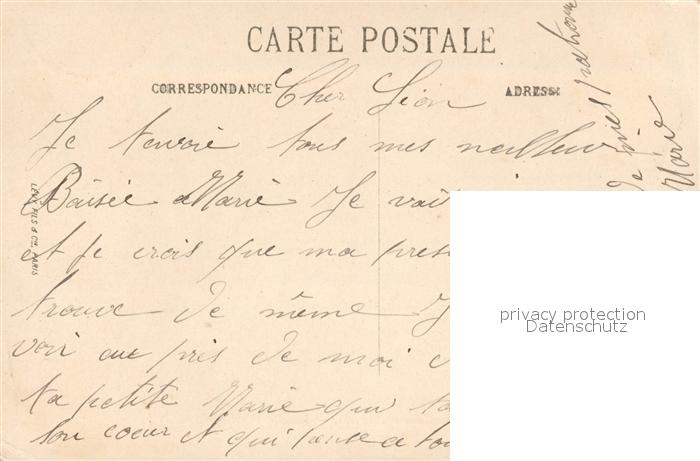 CARTE POSTALE
CORRESPONDANCE
ADRESSE
Cher Léon
Je tenvoie tous mes meilleur
Baisée Marie Je vai
et je crois que ma pres
trouve de même J
voir au pres de moi
ta petite Marie qui ta
ton coeur et qui panse a tou
de
Marie
LEVY FILS & Cie, PARIS
privacy protection
Datenschutz